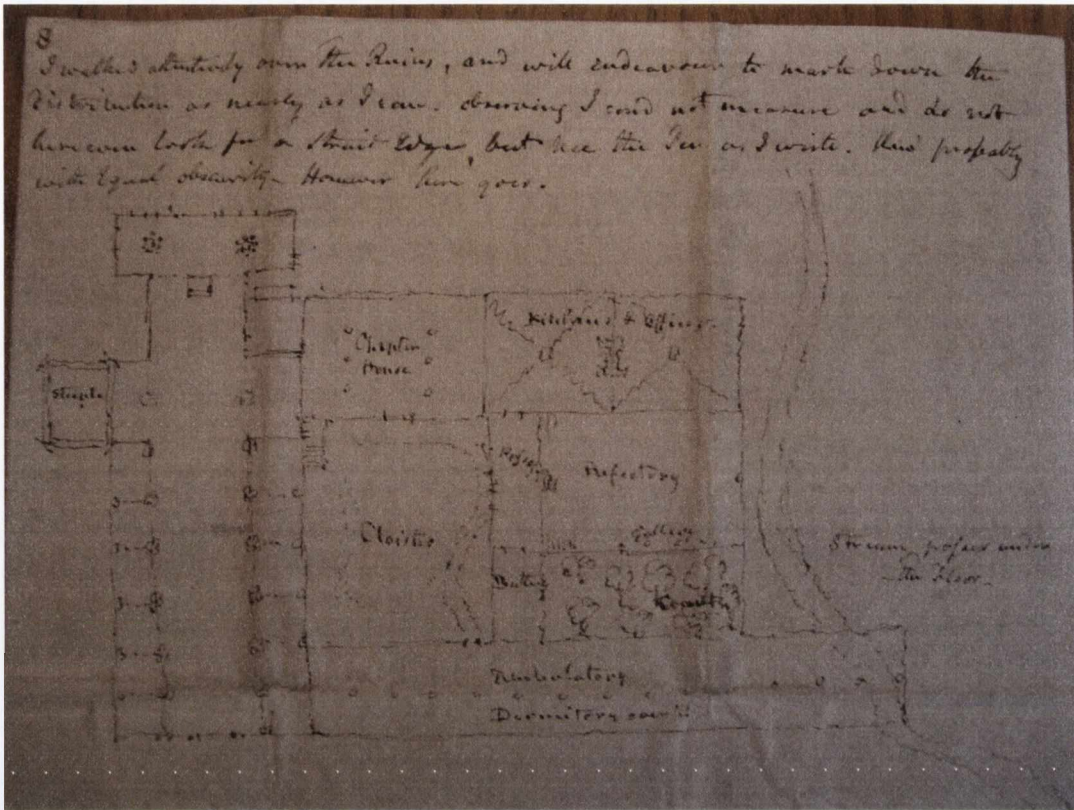 8
I walked attentively over the Ruins, and will endeavour to mark down the
Distribution as nearly as I can. observing I could not measure and do not
here even look for a strait Edge, but use the Pen as I write. And probably
with Equal obscurity. However here goes.
Chapter
House
Kitchens & Offices
Steeple
Passage
Refectory
Cloister
Gallery
Stream passes under
the Floor
Buttery
Ambulatory
Dormitory over it